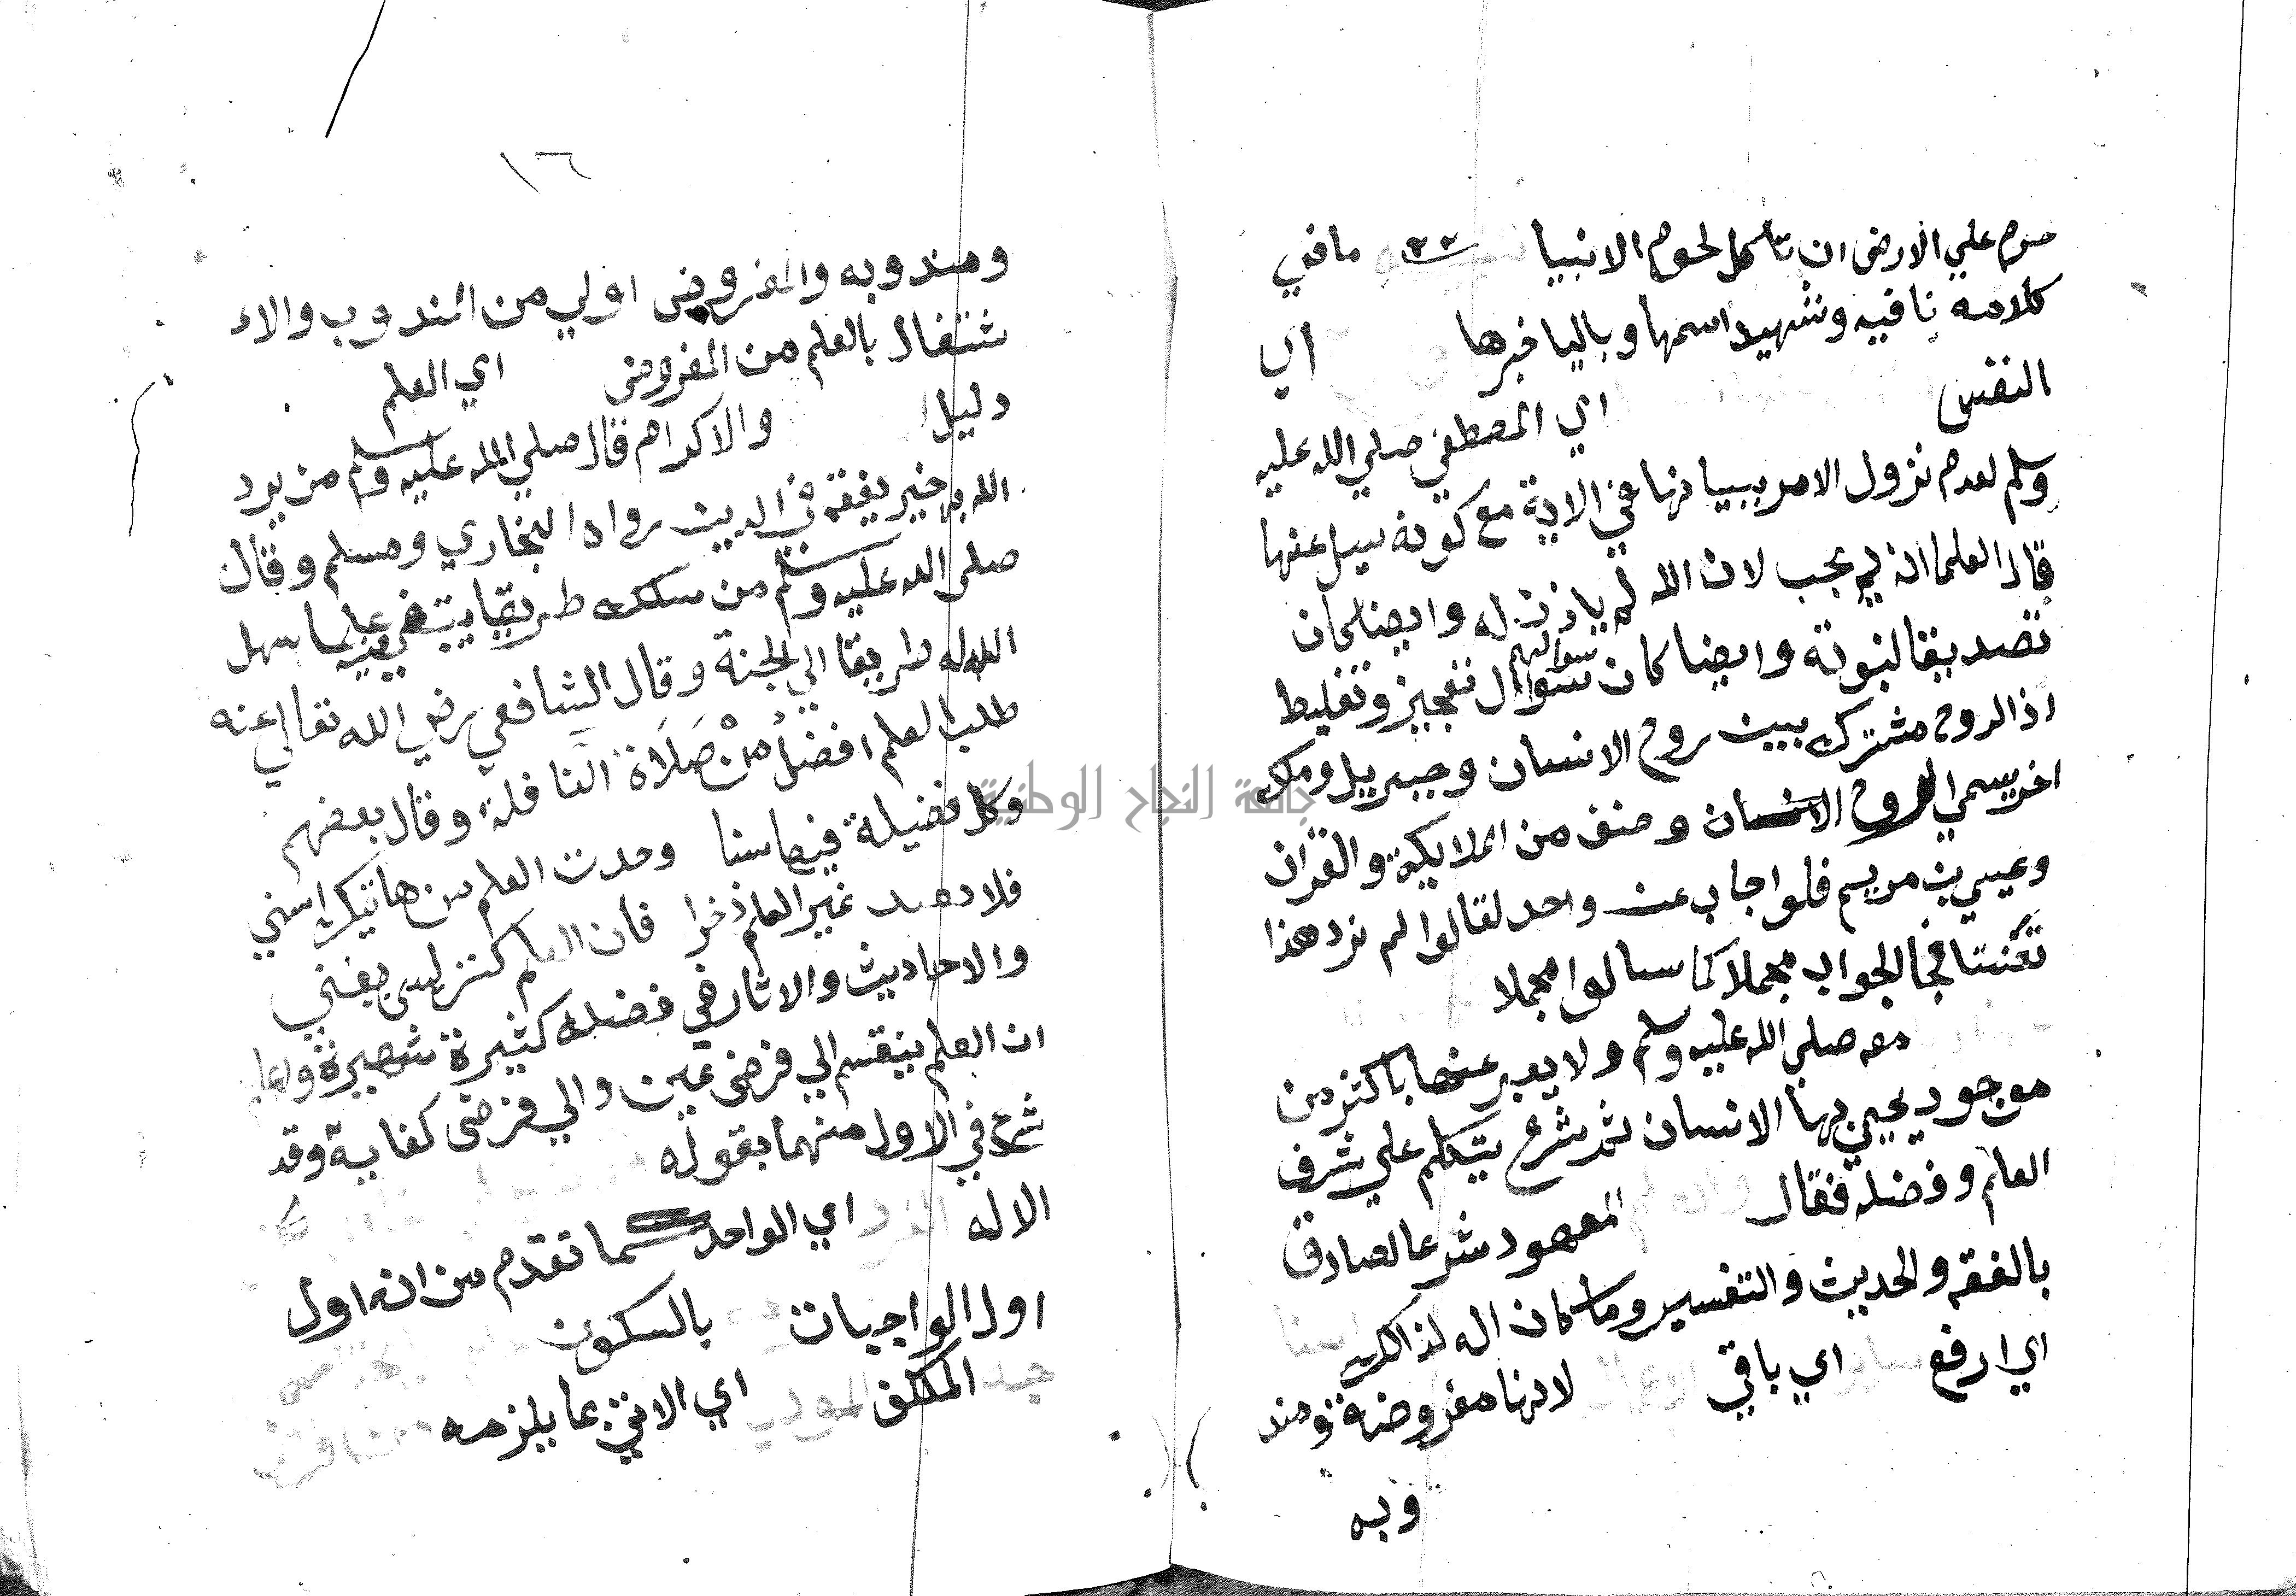 حرم علي الارض ان تاكل لحوم الانبيا ما في
كلامه نافيه وشهيد اسمها وباليا خبرها اي
النفس اي المصطفي صلي الله عليه
وسلم لعدم نزول الامر ببيانها في الاية مع كونه سيل عنها
قال العلما انه لم يجب لان الله لم ياذن له وايضا كان
تصديقا لنبوته وايضا كان سوالهم سوال تعجيز وتغليط
اذ الروح مشترك بين روح الانسان وجبريل وملك
اخر يسمي الروح الانسان وصنف من الملايكة والقران
وعيسي بن مريم فلو اجاب عن واحد لقالوا لم نرد هذا
تعنتا فجا الجواب مجملا كما سالوا مجملا
معه صلي الله عليه وسلم ولا يعبر عنها باكثر من
موجود يحيي بها الانسان ثم شرع يتكلم علي شرف
العلم وفضله فقال المعهود شرعا الصادق
بالفقه والحديث والتفسير وما كان اله لذالك
اي ارفع اي باقي لانها مفروضة ومند
وبه
جامعة النجاح الوطنية
١٦
ومندوبه والمفروض اولي من المندوب والا
شتغال بالعلم من المفروض اي العلم
دليل والاكرام قال صلي الله عليه وسلم من يرد
الله به خير يفقه في الدين رواه البخاري ومسلم وقال
صلي الله عليه وسلم من سلك طريقا يبتغي فيه علما سهل
الله له طريقا الي الجنة وقال الشافعي رضي الله تعالي عنه
طلب العلم افضل من صلاة النافلة وقال بعضهم
وكل فضيلة فيها سنا وجدت العلم من هاتيك اسني
فلا غير العلم ذخرا فان العلم كنز ليس يفني
والاحاديث والاثار في فضله كثيرة شهيرة واعلم
ان العلم ينقسم الي فرض عين والي فرض كفاية وقد
شرع في الاول منهما بقوله
الاله الفرد اي الواحد كما تقدم من انه اول
اول الواجبات بالسكون
المكلف اي الاتي بما يلزمه